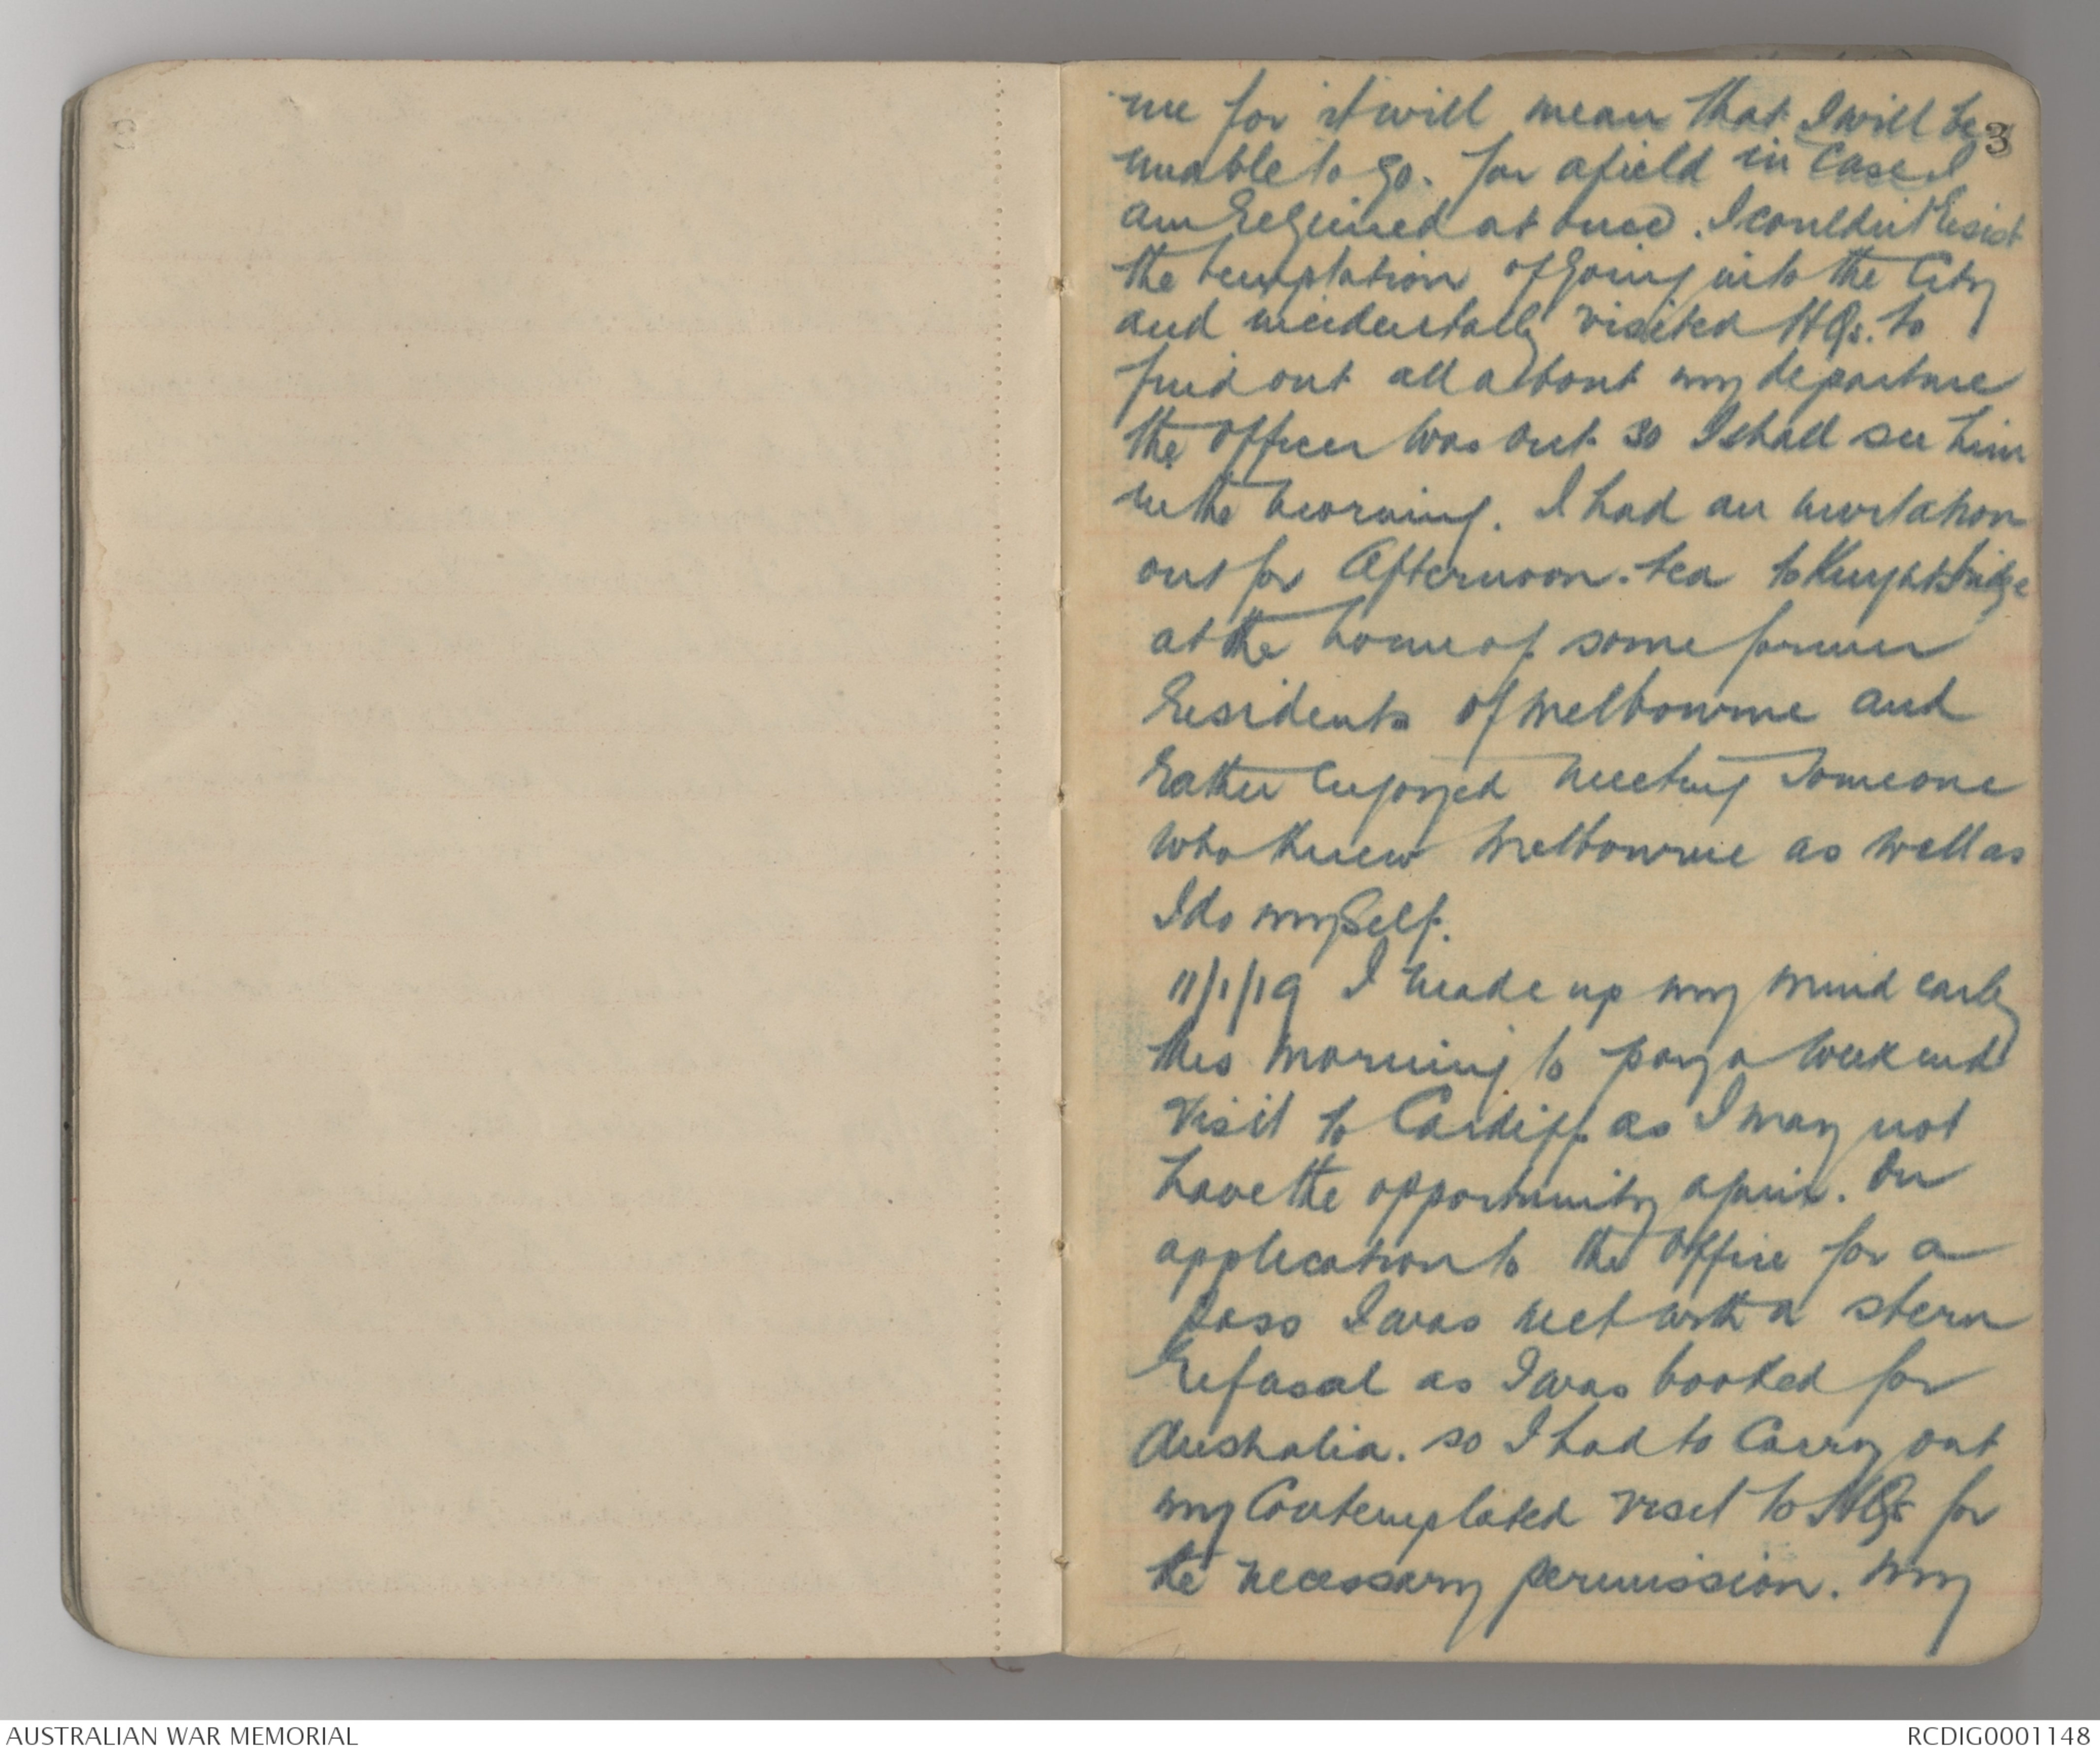 3
me for it will mean that I will be
unable to go. far afield in case I
am required at once. I couldn't resist
the temptation of going into the City
and incidentally visited HQs. to
find out all about my departure
the officer was out so I shall see him
in the morning. I had an invitation
out for afternoon. tea to Knightsbridge
at the home of some former
residents of Melbourne and
rather enjoyed meeting someone
who knew Melbourne as well as
I do myself.
11/1/19 I made up my mind early
this morning to pay a weekend
visit to Cardiff as I may not
have the opportunity again. On
application to the office for a
pass I was met with a stern
refusal as I was booked for
Australia. so I had to carry out
my contemplated visit to HQs for
the necessary permission. My
AUSTRALIAN WAR MEMORIAL
RCDIG0001148